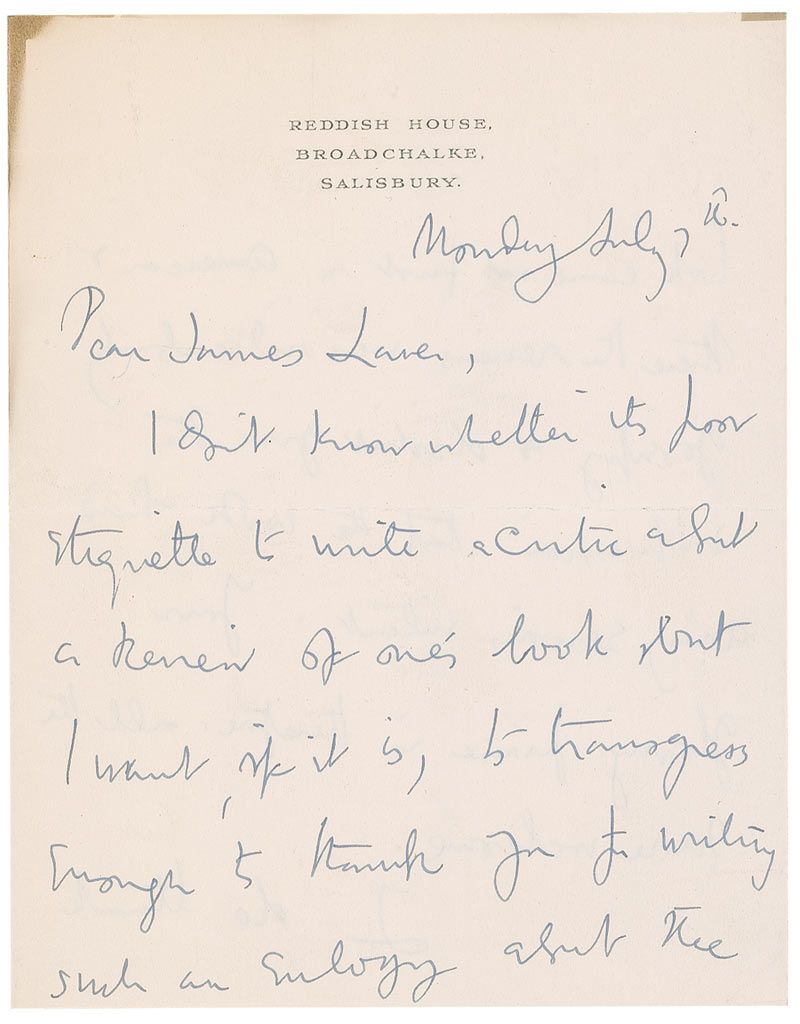 REDDISH HOUSE,
BROADCHALKE,
SALISBURY.
Monday July 7th.
Dear James Laver,
I don't know whether its poor
etiquette to write a critic about
a review of one's book but
I want, if it is, to transgress
enough to thank you for writing
such an eulogy about the